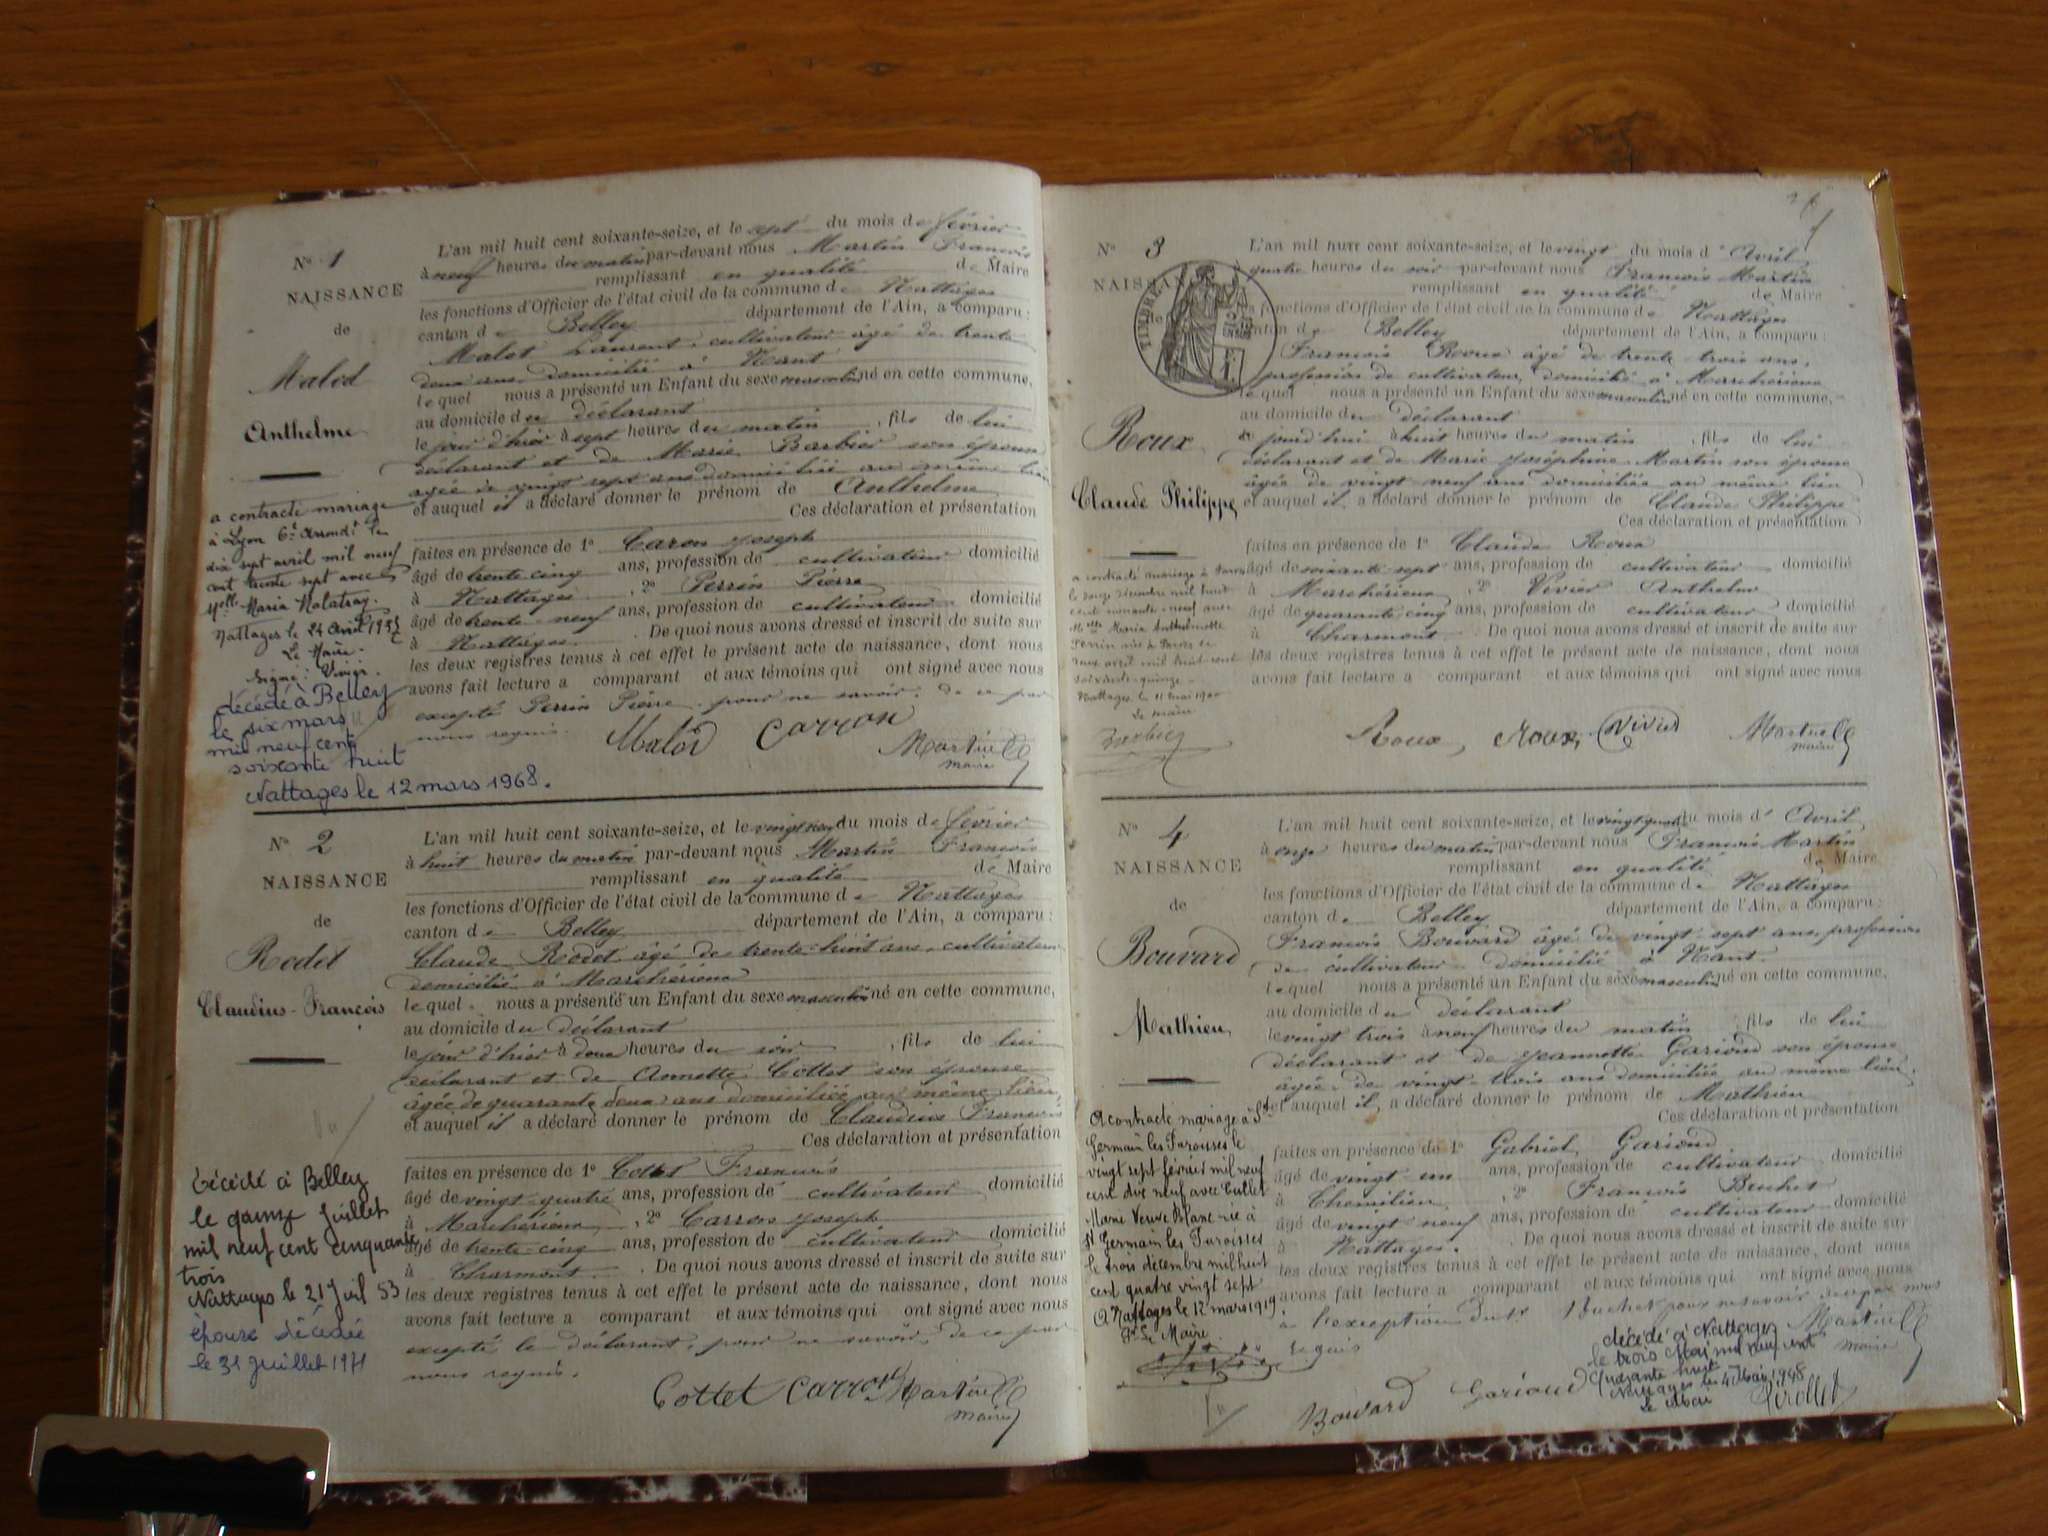 N° 1
NAISSANCE
de
Malod
Anthelme
L'an mil huit cent soixante-seize, et le sept du mois de février
à neuf heures du matin par-devant nous Martin François
remplissant en qualité de Maire
les fonctions d'Officier de l'état civil de la commune de Nattages
canton de Belley département de l'Ain, a comparu :
Malot Laurent, cultivateur âgé de trente
deux ans, domicilié à Nant
lequel nous a présenté un Enfant du sexe masculin né en cette commune,
au domicile du déclarant
le jour d'hier à sept heures du matin, fils de lui
déclarant et de Marie Barbier son épouse
agée de vingt sept ans domiciliée au même lieu
et auquel il a déclaré donner le prénom de Anthelme
Ces déclaration et présentation
faites en présence de 1° Caron Joseph
âgé de trente cinq ans, profession de cultivateur domicilié
à Nattages, 2° Perrin Pierre
âgé de trente-neuf ans, profession de cultivateur domicilié
à Nattages. De quoi nous avons dressé et inscrit de suite sur
les deux registres tenus à cet effet le présent acte de naissance, dont nous
avons fait lecture a comparant et aux témoins qui ont signé avec nous
excepté Perrin Pierre pour ne savoir, de ce par
nous requis.
Malod Carron Martin
maire
a contracté mariage
à Lyon 6e Arrondt le
dix sept avril mil neuf
cent trente sept avec
Melle Maria
Nattages le 24 avril 193
Le Maire
Signé :
décédé à Belley
le six mars
mil neuf cent
soixante huit
Nattages le 12 mars 1968.
N° 2
NAISSANCE
de
Rodet
Claudius-François
L'an mil huit cent soixante-seize, et le vingt neuf du mois de février
à huit heures du matin par-devant nous Martin François
remplissant en qualité de Maire
les fonctions d'Officier de l'état civil de la commune de Nattages
canton de Belley département de l'Ain, a comparu :
Claude Rodet âgé de trente-huit ans, cultivateur
domicilié à Marchérieux
lequel nous a présenté un Enfant du sexe masculin né en cette commune,
au domicile du déclarant
le jour d'hier à deux heures du soir, fils de lui
déclarant et de Annette Cottet son épouse
âgée de quarante deux ans domiciliée au même lieu,
et auquel il a déclaré donner le prénom de Claudius François
Ces déclaration et présentation
faites en présence de 1° Cottet François
âgé de vingt-quatre ans, profession de cultivateur domicilié
à Marchérieux, 2° Carron Joseph
âgé de trente-cinq ans, profession de cultivateur domicilié
à Charmont. De quoi nous avons dressé et inscrit de suite sur
les deux registres tenus à cet effet le présent acte de naissance, dont nous
avons fait lecture a comparant et aux témoins qui ont signé avec nous
excepté le déclarant, pour ne savoir, de ce par
nous requis.
Cottet Carron Martin
maire
Décédé à Belley
le quinze Juillet
mil neuf cent cinquante
trois
Nattages le 21 Juil 53
épouse décédée
le 31 Juillet 1971
N° 3
NAISSANCE
TIMBRE
Roux
Claude Philippe
L'an mil huit cent soixante-seize, et le vingt du mois d'Avril
quatre heures du soir par-devant nous François Martin
remplissant en qualité de Maire
les fonctions d'Officier de l'état civil de la commune de Nattages
canton de Belley département de l'Ain, a comparu :
François Roux âgé de trente trois ans,
profession de cultivateur, domicilié à Marchérieux
lequel nous a présenté un Enfant du sexe masculin né en cette commune,
au domicile du déclarant
jourd'hui à huit heures du matin, fils de lui
déclarant et de Marie Joséphine Martin son épouse
âgée de vingt neuf ans domiciliée au même lieu
et auquel il a déclaré donner le prénom de Claude Philippe
Ces déclaration et présentation
faites en présence de 1° Claude Roux
âgé de soixante-sept ans, profession de cultivateur domicilié
à Marchérieux, 2° Vivier Anthelme
âgé de quarante cinq ans, profession de cultivateur domicilié
à Charmont. De quoi nous avons dressé et inscrit de suite sur
les deux registres tenus à cet effet le présent acte de naissance, dont nous
avons fait lecture a comparant et aux témoins qui ont signé avec nous
Roux, Roux, Vivier Martin
maire
a contracté mariage à
le onze décembre mil huit
cent nonante-neuf avec
Melle Maria Anthelmette
Perrin née à
avril mil huit cent
soixante-quinze
Nattages le 11 mai 1900
Le maire
Barbier
N° 4
NAISSANCE
de
Bouvard
Mathieu
L'an mil huit cent soixante-seize, et le vingt quatre du mois d'Avril
à onze heures du matin par-devant nous François Martin
remplissant en qualité de Maire
les fonctions d'Officier de l'état civil de la commune de Nattages
canton de Belley département de l'Ain, a comparu :
François Bouvard âgé de vingt-sept ans, profession
de cultivateur domicilié à Nant
lequel nous a présenté un Enfant du sexe masculin né en cette commune,
au domicile du déclarant
le vingt trois à neuf heures du matin, fils de lui
déclarant et de Jeannette Gariod son épouse
âgée de vingt-trois ans domiciliée au même lieu.
et auquel il a déclaré donner le prénom de Mathieu
Ces déclaration et présentation
faites en présence de 1° Gabriel Garioud
âgé de vingt-un ans, profession de cultivateur domicilié
à Chemilieu, 2° François Buchet
âgé de vingt neuf ans, profession de cultivateur domicilié
à Nattages. De quoi nous avons dressé et inscrit de suite sur
les deux registres tenus à cet effet le présent acte de naissance, dont nous
avons fait lecture a comparant et aux témoins qui ont signé avec nous
à l'exception dud. Buchet pour ne savoir, de ce par nous
requis
Bouvard Garioud Martin
maire
A contracté mariage à St
Germain les Paroisses le
vingt sept février mil neuf
cent dix neuf avec Cullet
Marie Veuve Blanc née à
St Germain les Paroisses
le trois décembre mil huit
cent quatre vingt sept
A Nattages le 12 mars 1919
Le Maire
décédé à Nattages
le trois Mai mil neuf cent
quarante huit
Nattages le 4 Mai 1948
Le Maire